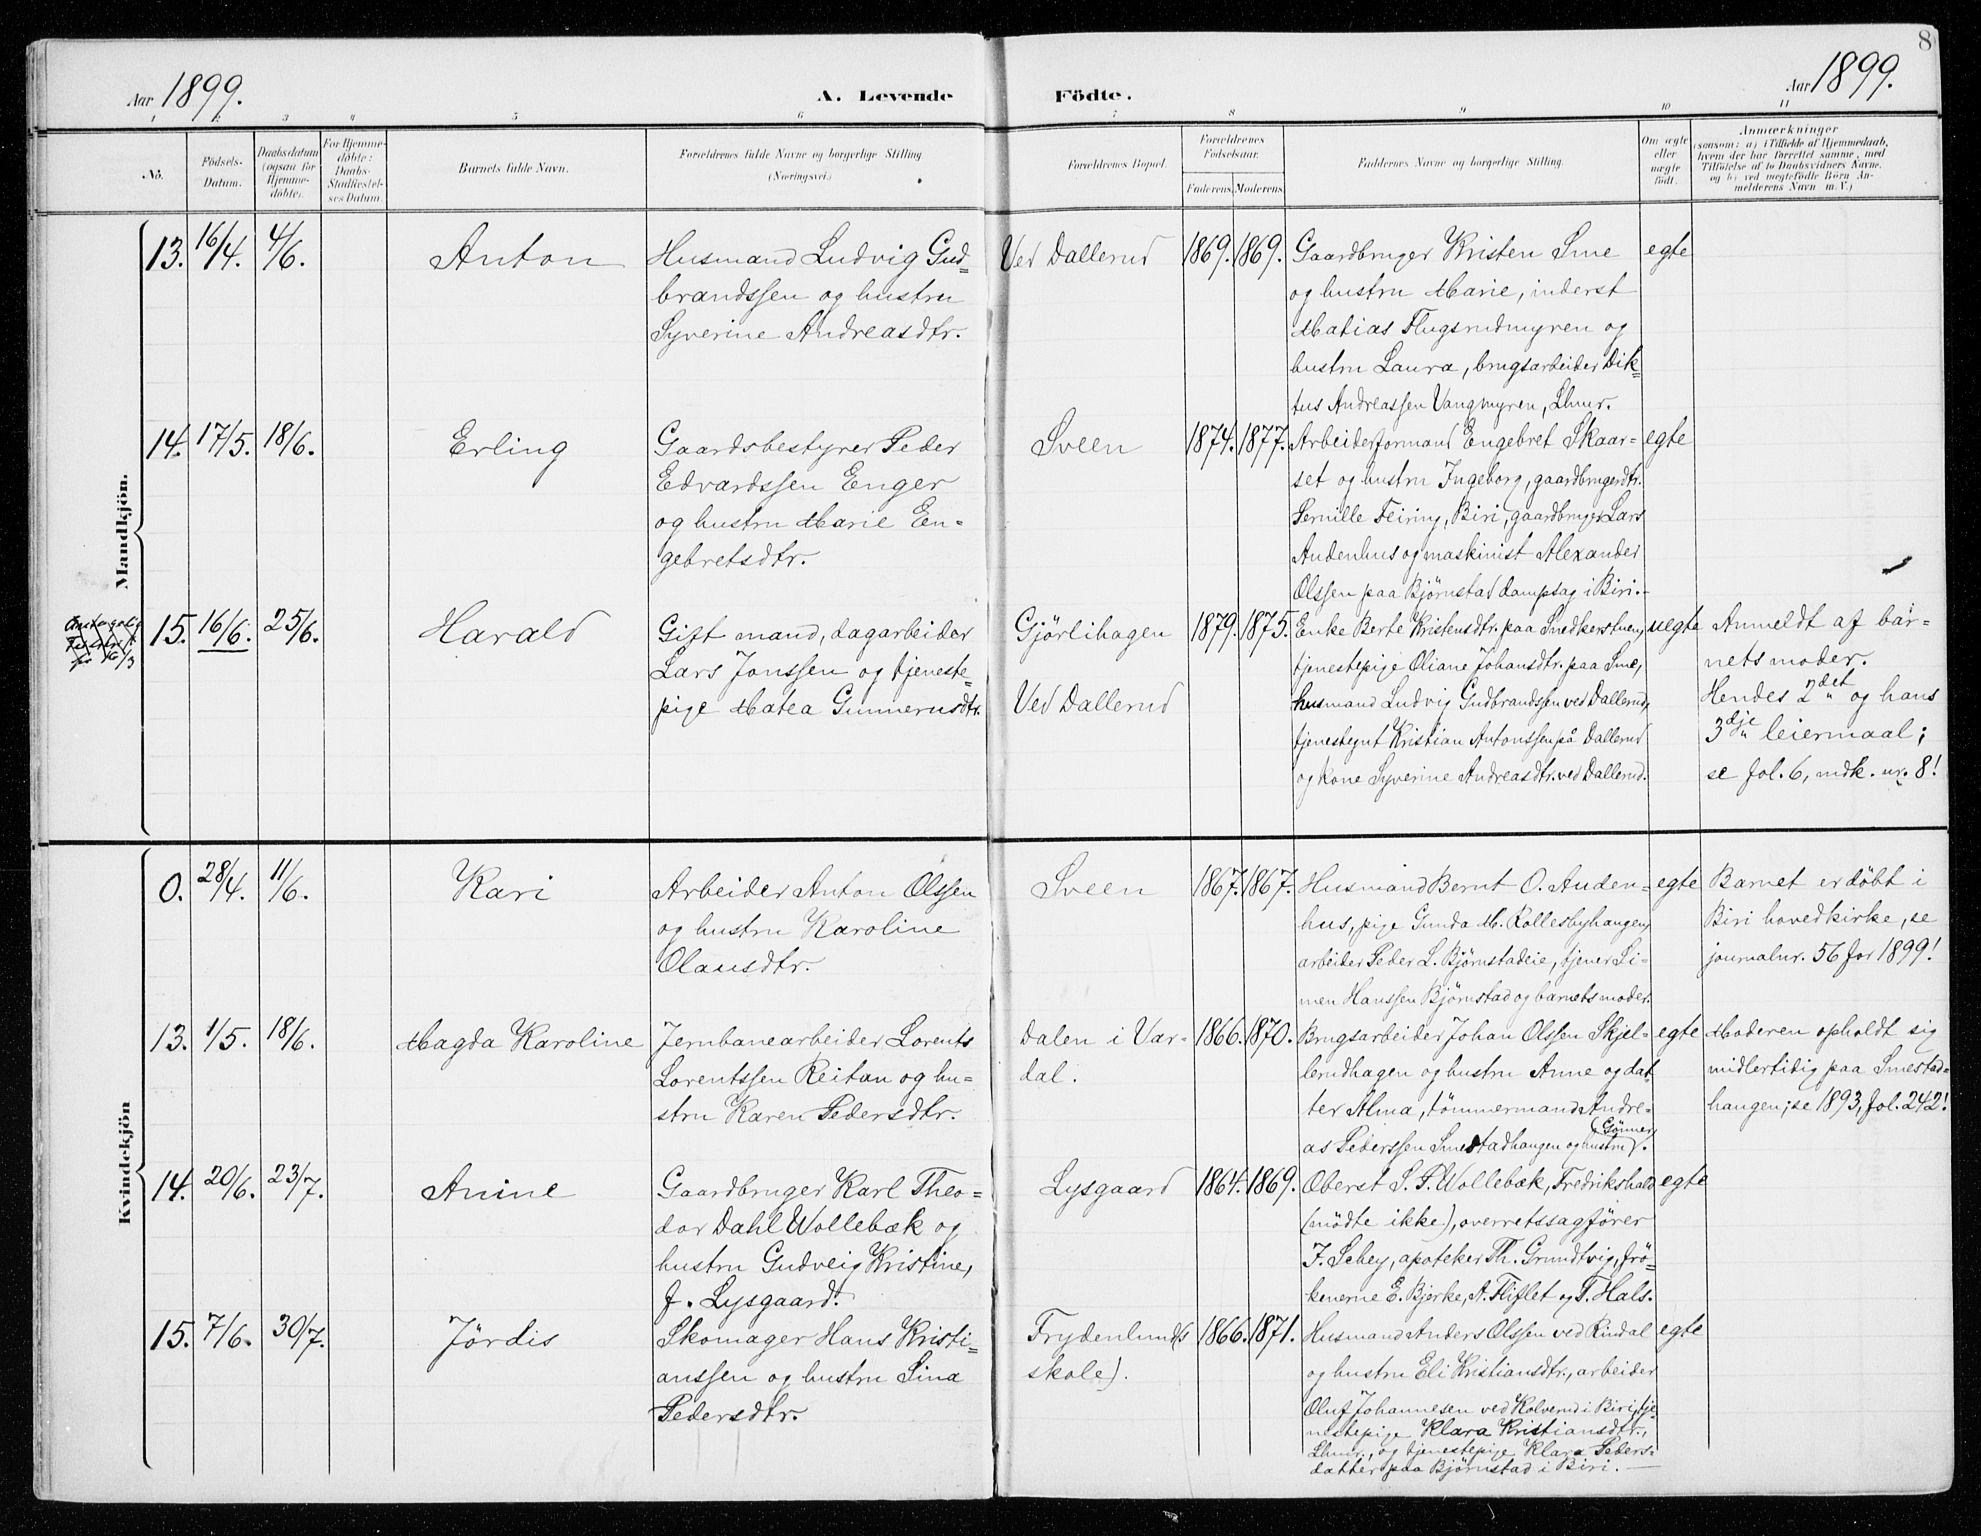 8
Aar 1899.
A. Levende Födte.
Aar 1899.
1 2 3 4 5 6 7 8 9 10 11
No.
Födsels-
Datum.
Daabsdatum
(ogsaa for
Hjemme-
döbte).
For Hjemme-
döbte:
Daabs-
Stadfæstel-
ses Datum.
Barnets fulde Navn.
Forældrenes fulde Navne og borgerlige Stilling
(Næringsvei.)
Forældrenes Bopæl.
Forældrenes
Födselsaar.
Faderens. Moderens.
Faddernes Navne og borgerlige Stilling.
Om ægte
eller
uægte
født.
Anmærkninger
(saasom: a) i Tilfælde af Hjemmedaab,
hvem der har forrettet samme, med
Tilföielse af to Daabsvidners Navne,
og b) ved uegtefödte Börn An-
melderens Navn m. V.)
Mandkjön.
13. 16/4. 4/6. Anton
Husmand Ludvig Gud=
brandssen og hustru
Syverine Andreasdtr.
Ved Dallerud
1869. 1869.
Gaardbruger Kristen Sme
og hustru Marie, inderst
Matias Flugsrudmyren og
hustru Laura, brugsarbeider Dik=
tus Andreassen Vangmyren, Lhmr.
egte
14. 17/5. 18/6. Erling
Gaardsbestyrer Peder
Edvardssen Enger
og hustru Marie En-
gebretsdtr.
Sveen
1874. 1877.
Arbeiderformand Engebret Skaar-
set og hustru Ingeborg, gaardbrugerdtr.
Pernille Feiring, Biri, gaardbruger Lars
Audenhus og maskinist Alexander
Olssen paa Bjørnstad dampsag i Biri.-
egte
15. 16/6. 25/6. Harald
Gift mand, dagarbeider
Lars Jonssen og tjeneste=
pige Matea Gunnerusdtr.
Gjörlihagen
Ved Dallerud
1879. 1875.
Enke Berte Kristensdtr. paa Smedkerstuen,
tjenestepige Oliane Johansdtr. paa Sme,
husmand Ludvig Gudbrandssen ved Dallerud,
tjenestegut Kristian Antonssen på Dallerud
og kone Syverine Andreasdtr. ved Dallerud.
uegte
Anmeldt af bar-
nets moder.
Hendes 2det og hans
3dje leiermaal;
se fol. 6, mdk. nr. 8!
Kvindekjön
0. 28/4. 11/6. Kari
Arbeider Anton Olssen
og hustru Karoline
Olausdtr.
Sveen
1867. 1867.
Husmand Bernt O. Auden-
hus, pige Gunda M. Kollesbyhangen,
arbeider Peder L. Bjørnstadeie, tjener Si-
men Hanssen Bjørnstad og barnets moder.
egte
Barnet er døbt i
Biri hovedkirke, se
journalnr. 56 for 1899!
13. 1/5. 18/6. Magda Karoline
Jernbanearbeider Lorents
Lorentssen Reitan og hu-
stru Karen Pedersdtr.
Dalen i Var-
dal.
1866. 1870.
Brugsarbeider Johan Olssen Skjel-
lerudhagen og hustru Anne og dat-
ter Alma, tömmermand Andre-
as Pederssen Smestadhangen og hustru (Gönner).
egte
Moderen opholdt sig
midlertidig paa Smestad=
hangen; se 1893, fol. 242!
14. 20/6. 23/7. Anine
Gaardbruger Karl Theo-
dor Dahl Wollebæk og
hustru Gudveig Kristine,
f. Lysgaard.
Lysgaard
1864. 1869.
Oberst S. P. Wollebæk, Fredrikshald
(mödte ikke), overretssagfører
F. Sebey, apoteker Th. Grundtvig, frö-
kenerne E. Bjerke, A. Fliflet og T. Hals.
egte
15. 7/6. 30/7. Jördis
Skomager Hans Kristi-
anssen og hustru Sina
Pedersdtr.
Frydenlund(s
skole).
1866. 1871.
Husmand Anders Olssen ved Rindal
og hustru Eli Kristiansdtr., arbeider
Oluf Johannesen ved Kolverud i Biri, tje-
nestepige Klara Kristiansdtr.,
Lhmr., og tjenestepige Klara Peders-
datter paa Bjørnstad i Biri. -
egte